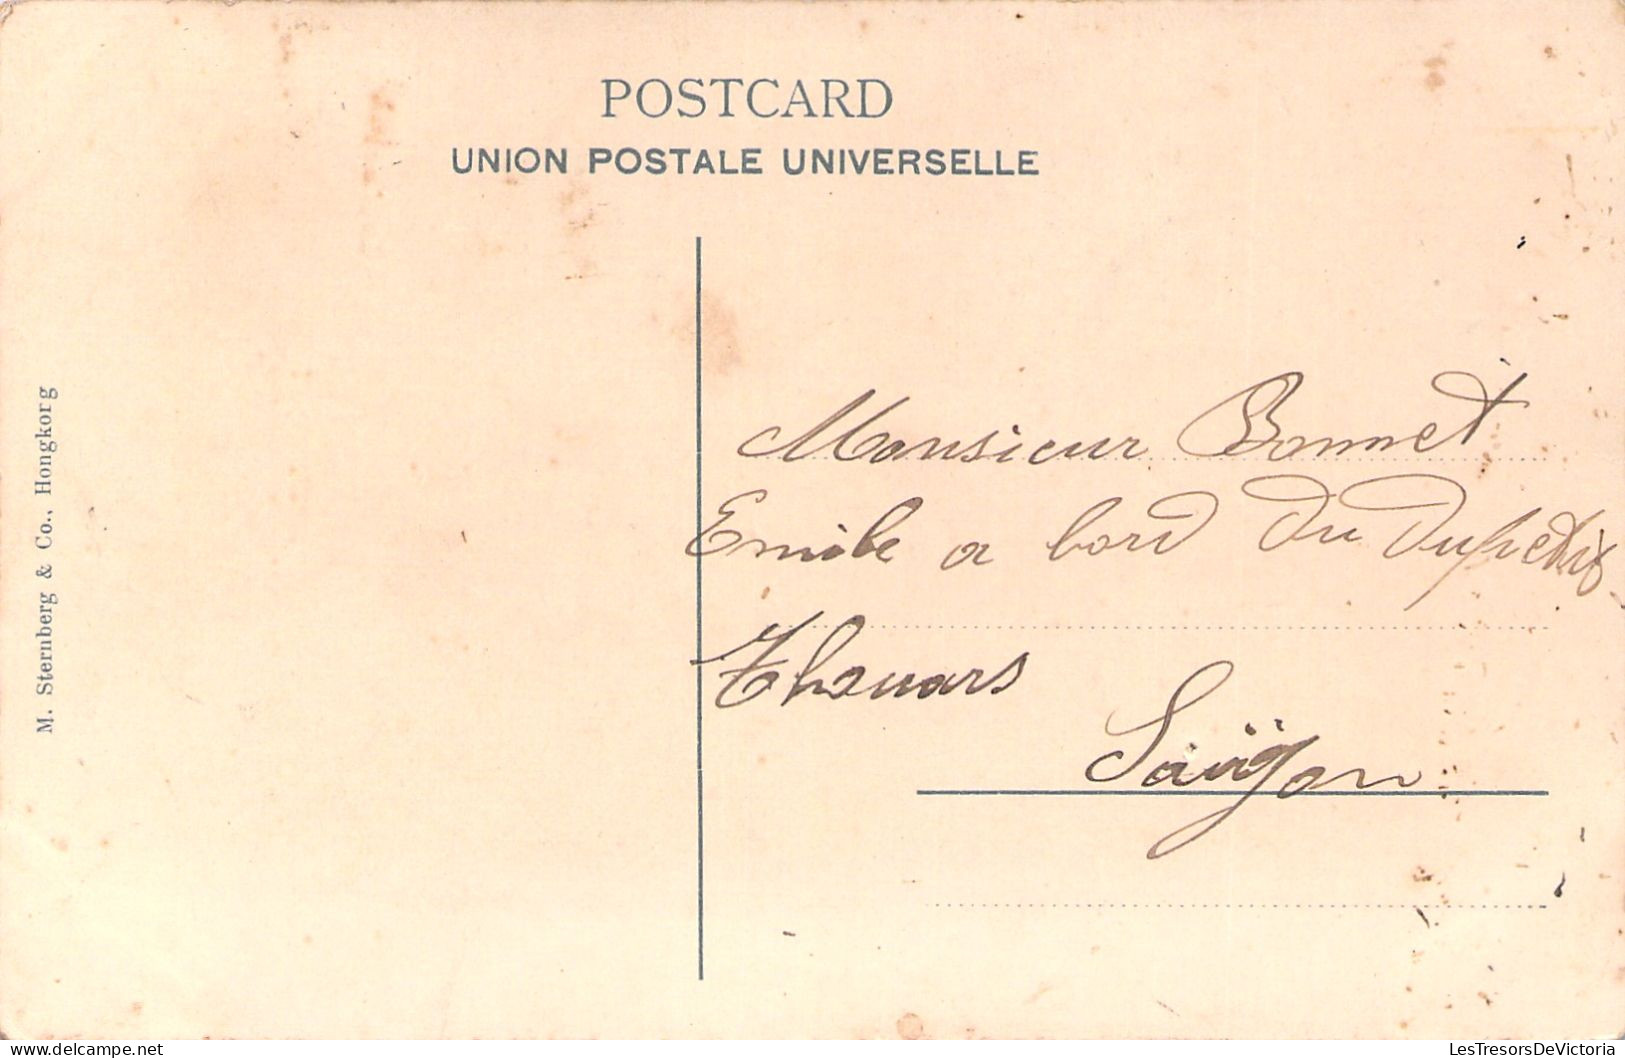 POSTCARD
UNION POSTALE UNIVERSELLE
M. Sternberg & Co., Hongkorg
Monsieur Bonnet
Emile a bord du Dupetit
Thouars
Saïgon
delcampe.net
LesTresorsDeVictoria